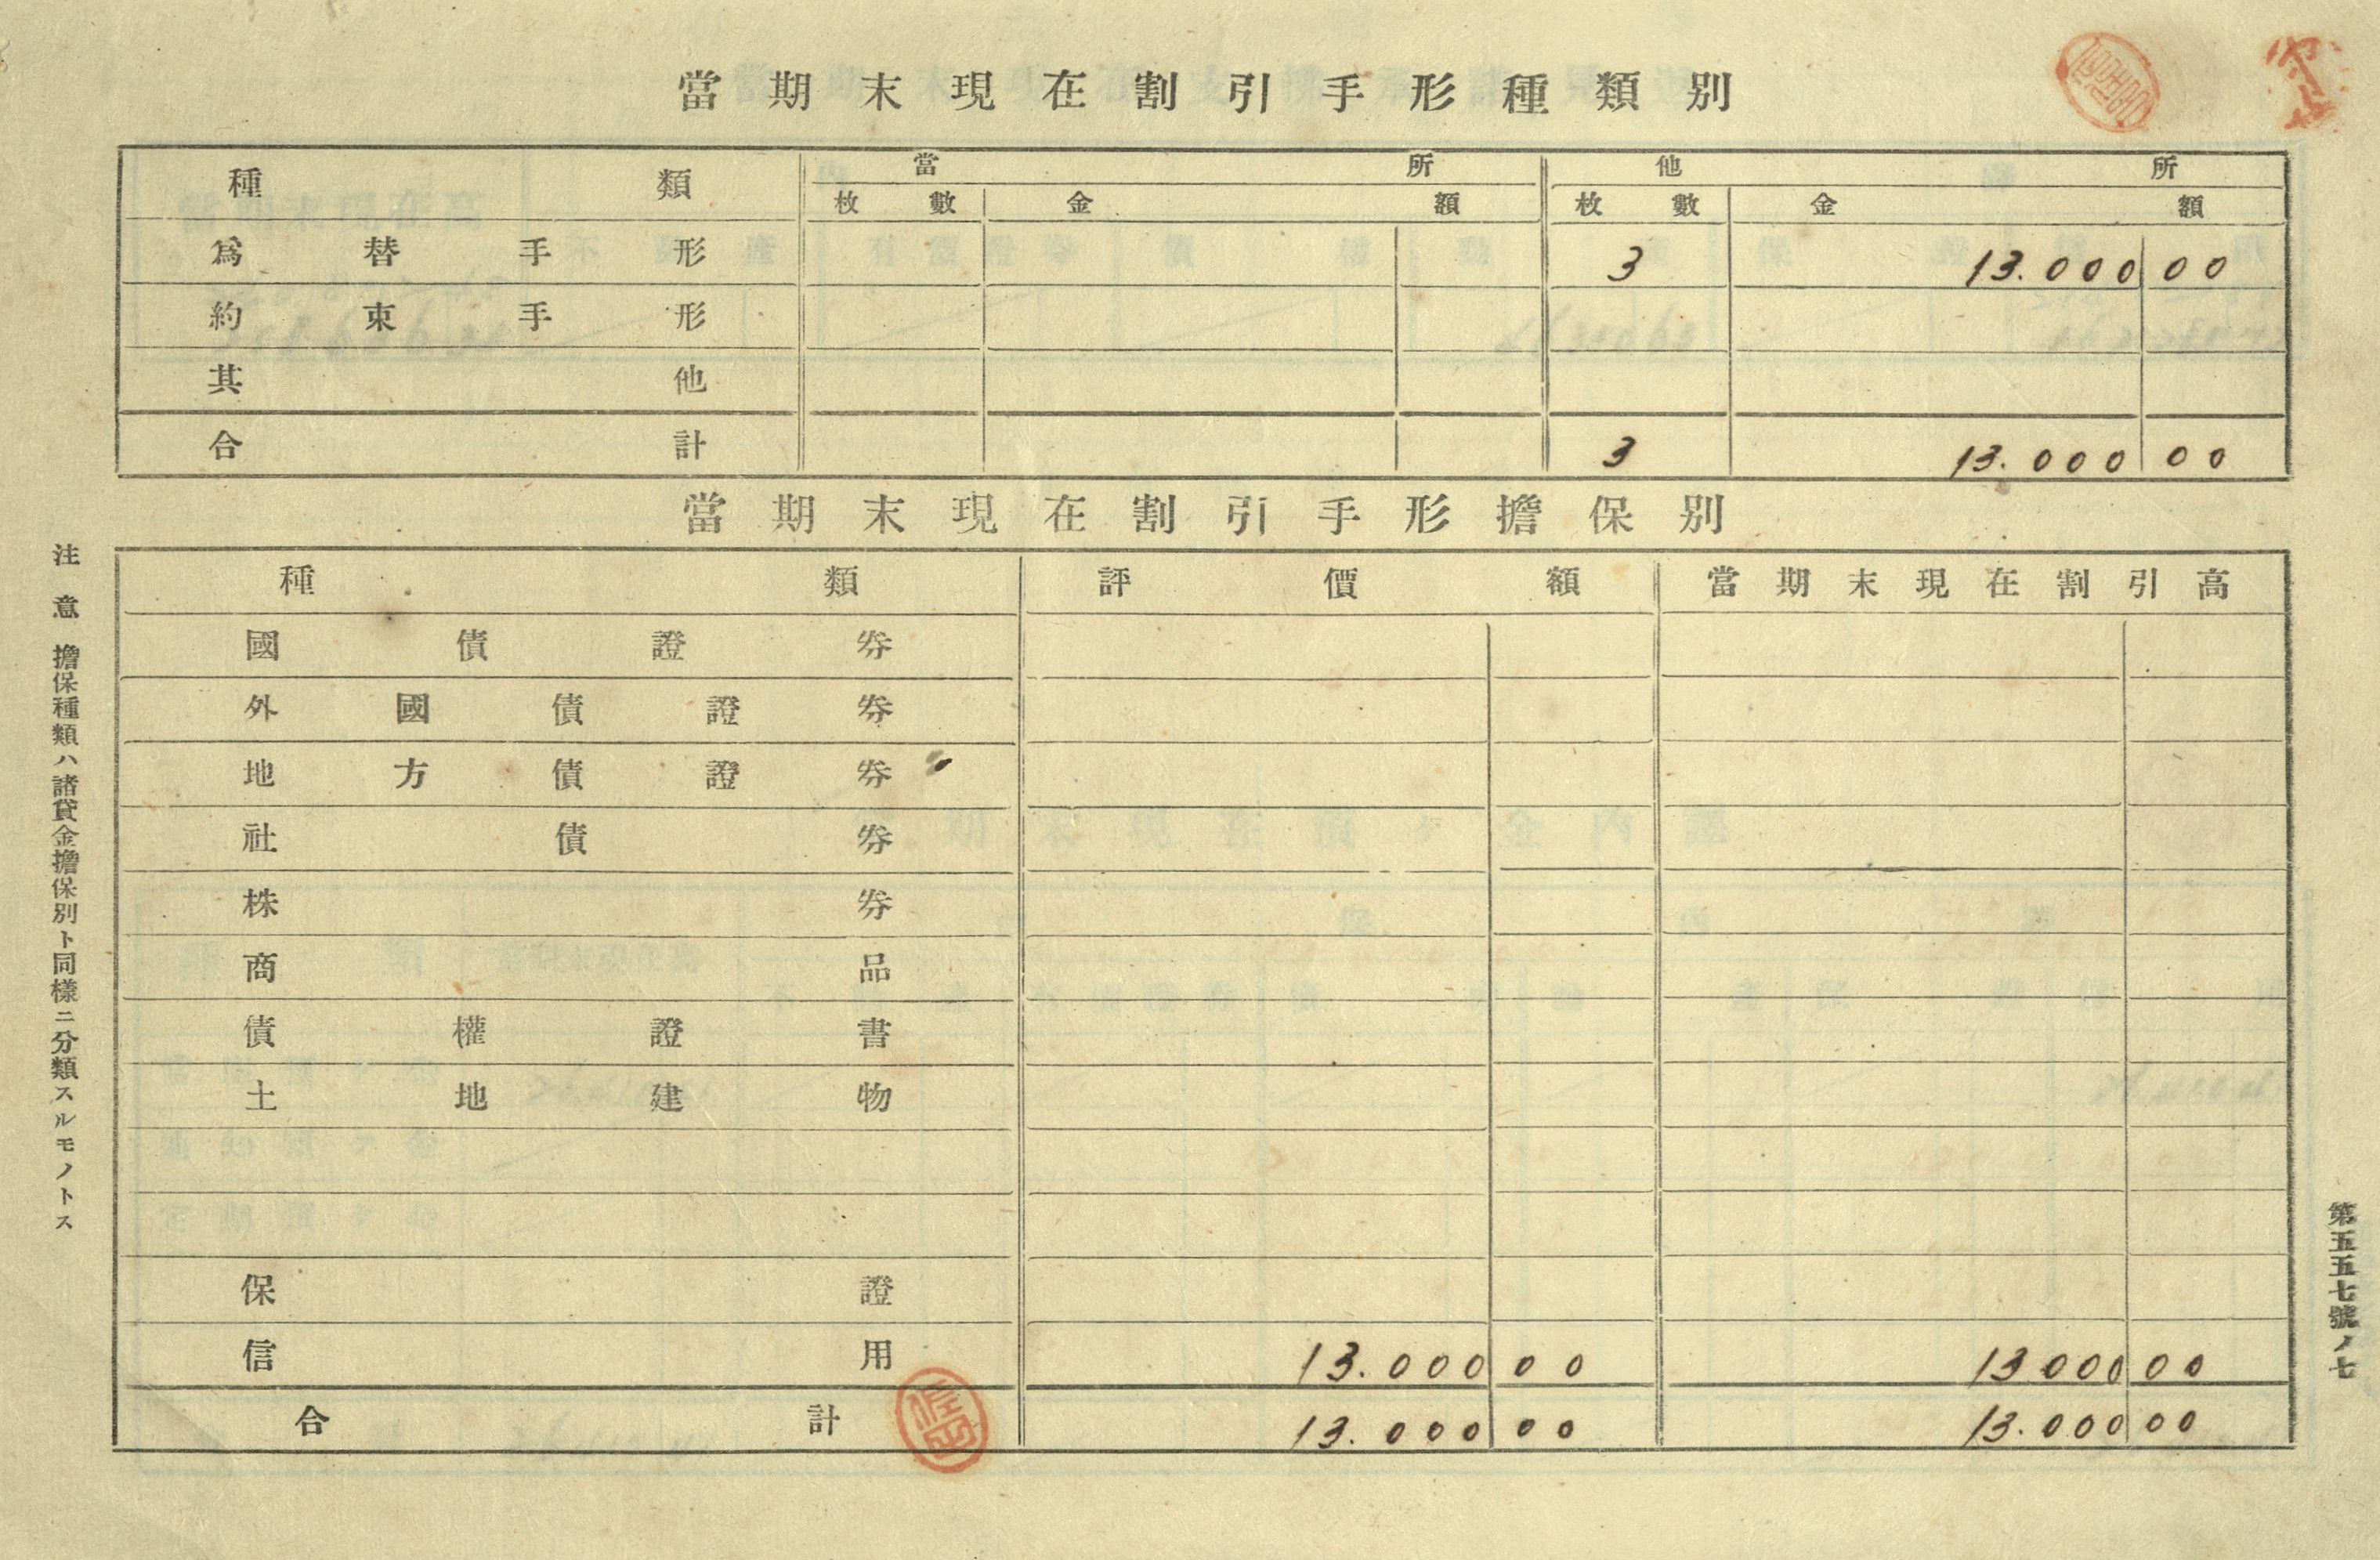 當期末現在割引手形種類別
種類 當所 他所
枚數 金額 枚數 金額
爲替手形 3 13.000 00
約束手形
其他
合計 3 13.000 00
當期末現在割引手形擔保別
種類 評價額 當期末現在割引高
國債證券
外國債證券
地方債證券
社債券
株券
商品
債權證書
土地建物
保證
信用 13.000 00 13000 00
合計 13.000 00 13.000 00
注意 擔保種類ハ諸貸金擔保別ト同樣ニ分類スルモノトス
第五五七號ノ七